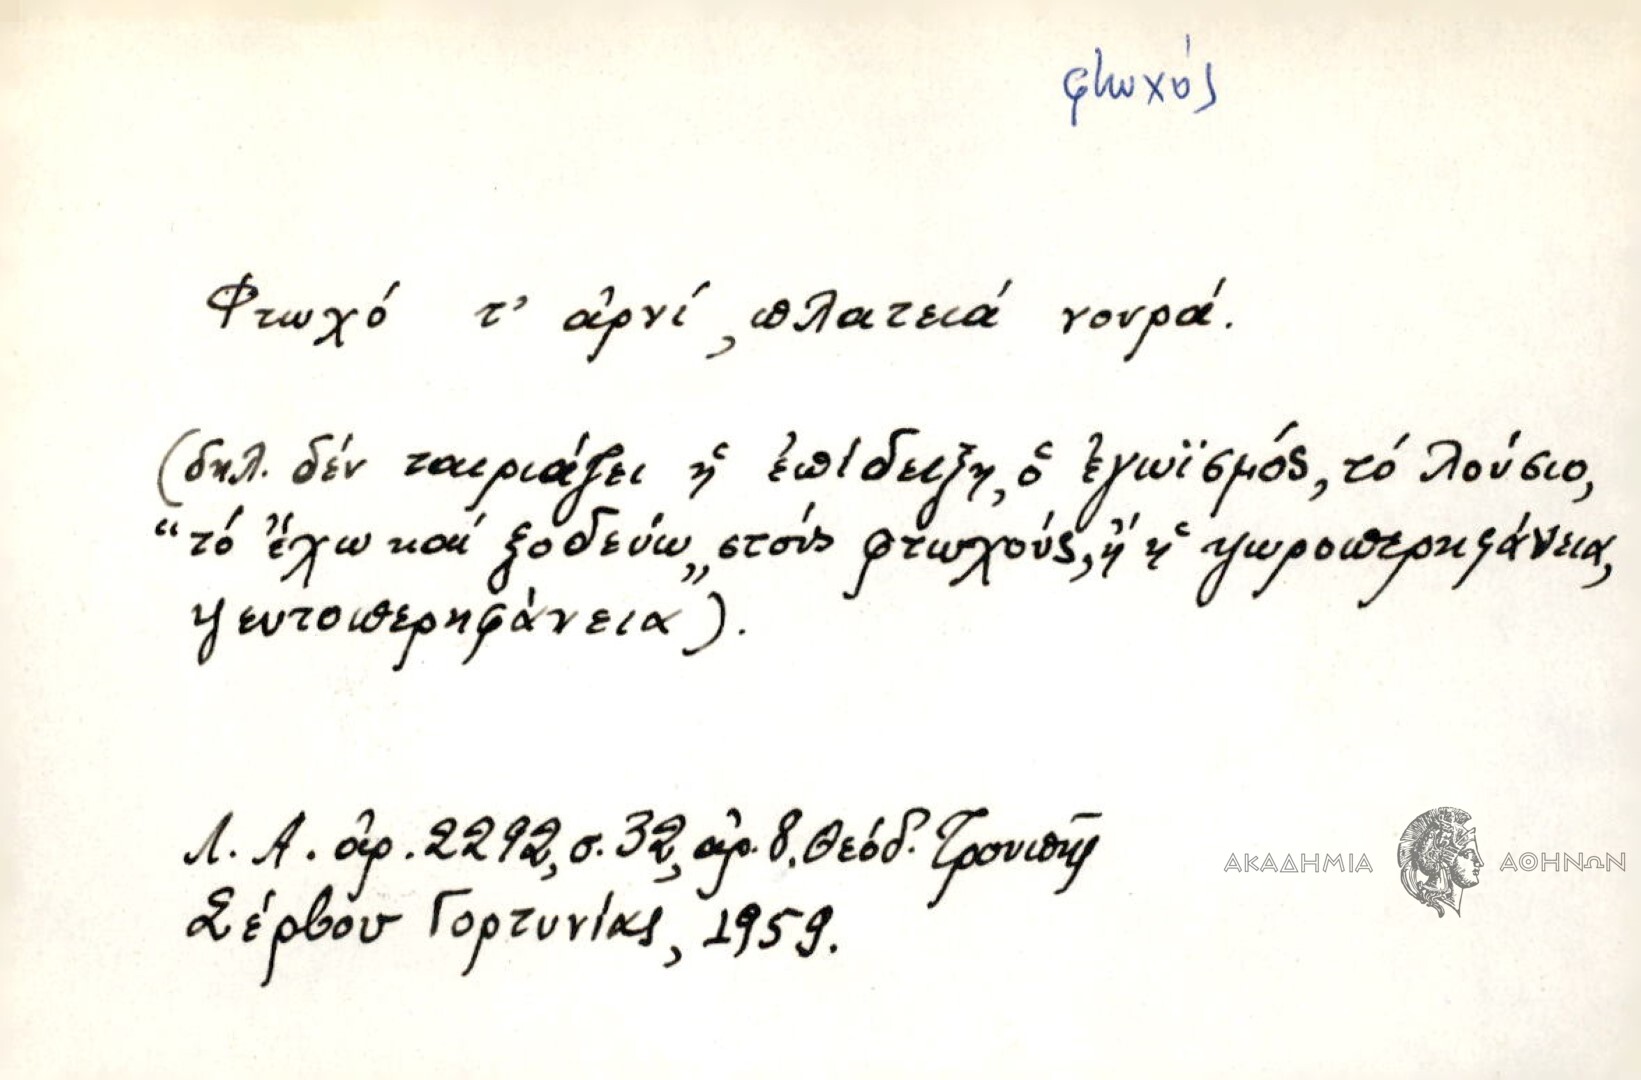 φτωχός
Φτωχό τ' ἀρνί, πλατειά νουρά.
(δηλ. δέν ταιριάζει ἡ ἐπίδειξη, ὁ ἐγωϊσμός, τό λούσιο,
“τό ἔχω καί ξοδεύω„ στούς φτωχούς, ἤ ἡ ψωροπερηφάνεια,
ψευτοπερηφάνεια).
Λ. Α. ἀρ. 2292, σ. 32, ἀρ. 8. Θεόδ. Τρουπῆς
Σέρβου Γορτυνίας, 1959.
ΑΚΑΔΗΜΙΑ ΑΘΗΝΩΝ